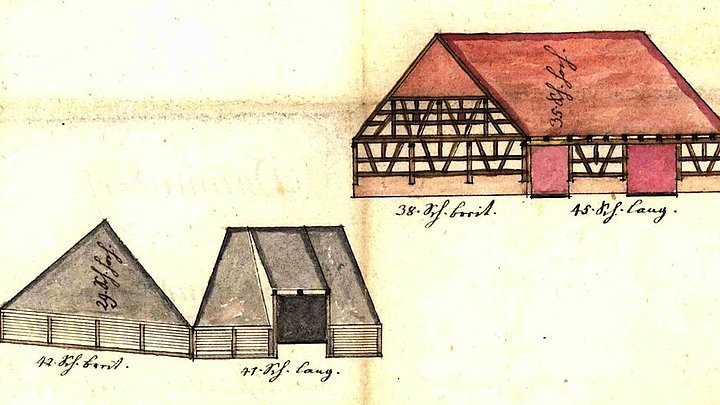 35. Sch. hoch.
38. Sch. breit.
45. Sch. lang.
29. Sch. hoch.
42. Sch. breit.
41. Sch. lang.